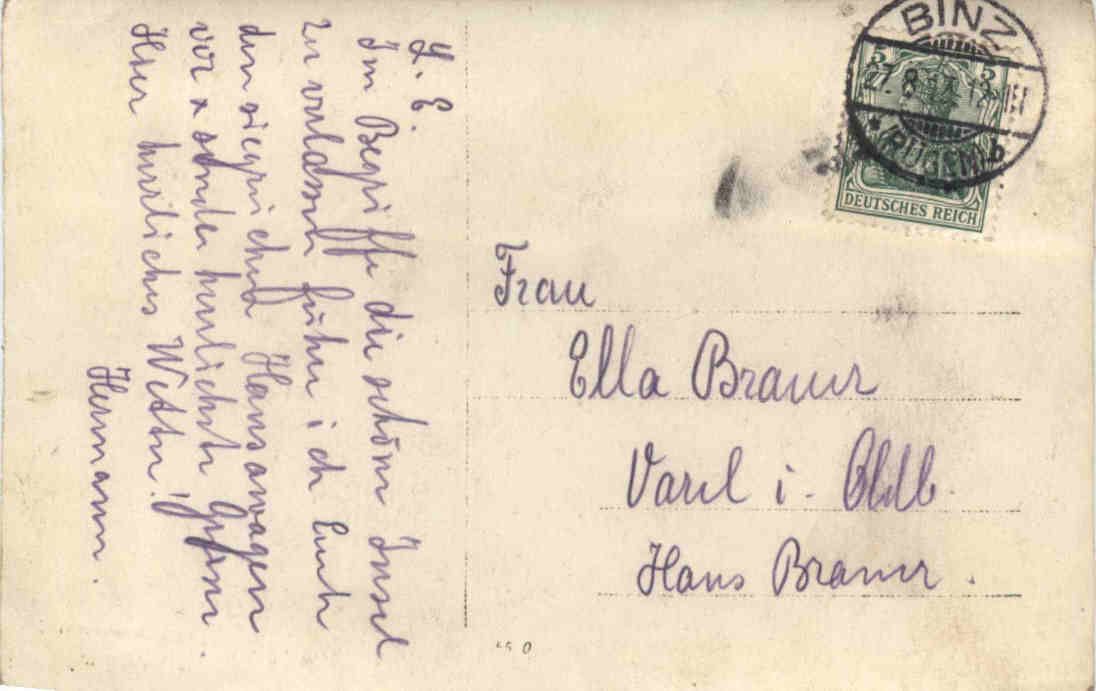 L. E.
Im Begriffe die schöne Insel
zu verlassen führe ich Euch
den siegreichen Hansawagen
vor & sende herzlichste Grüsse.
Hier herrliches Wetter!
Hermann.
BINZ
7.8.
(RÜGEN) b
5 5
DEUTSCHES REICH
Frau
Ella Brauer
Varel i. Oldb.
Hans Brauer.